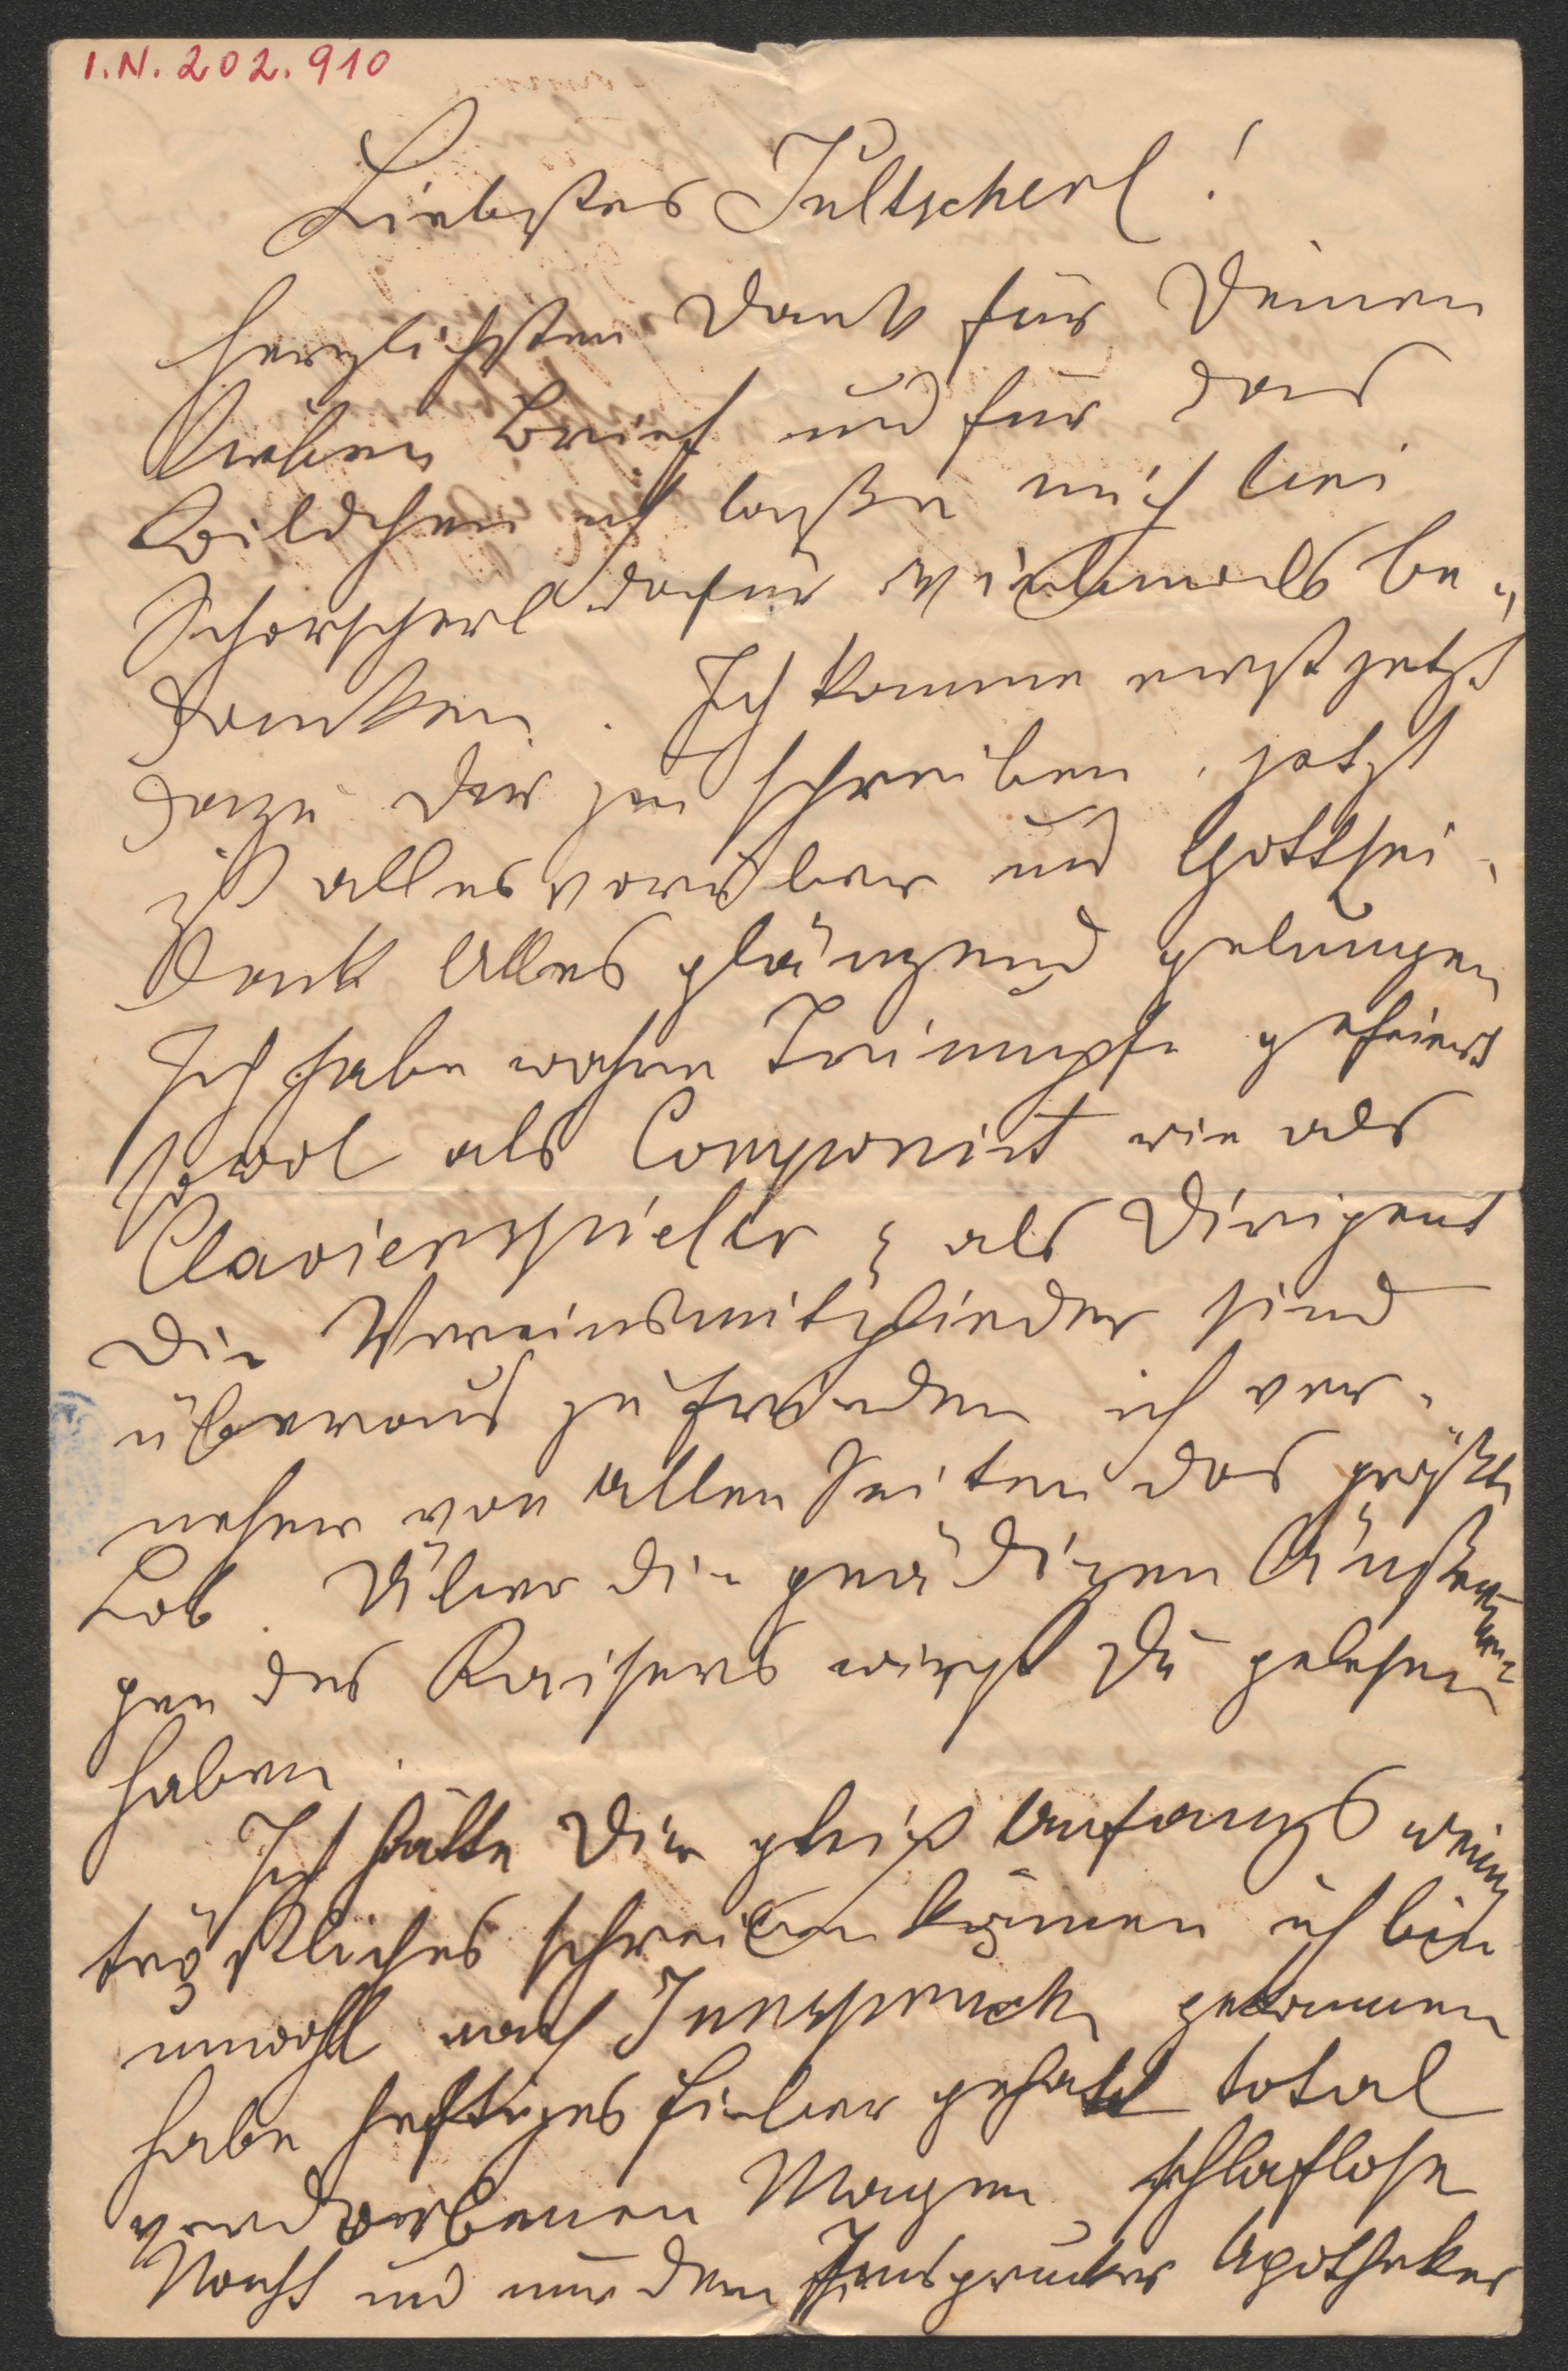 I.N. 202.910
Liebstes Jultscherl!
herzlichsten Dank für Deinen
lieben Brief und für das
Bildchen ich laße mich bei
Schorscherl dafür vielmals be-
danken. Ich komme erst jetzt
dazu Dir zu schreiben, jetzt
ist alles vorüber und Gottsei-
dank Alles glänzend gelungen
Ich habe wahre Triumpfe gefeiert
sowol als Componist wie als
Clavierspieler & als Dirigent
Die Vereinsmitglieder sind
überaus zufrieden ich ver-
nehme von allen Seiten das größte
Lob. Über die gnädigen Äußerun-
gen des Kaisers wirst Du gelesen
haben.
Ich hätte Dir gleich Anfangs wenig
tröstliches schreiben können ich bin
unwohl nach Innspruck gekommen
habe heftiges Fieber gehabt total
verdorbenen Magen schlaflose
Nacht und nur dem Innsprucker Apotheker